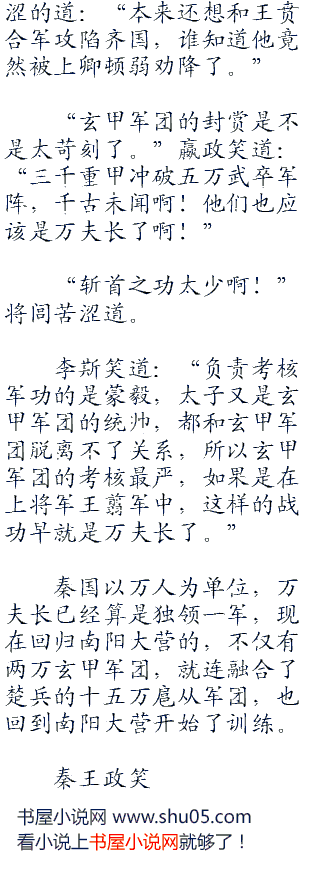 涩的道：“本来还想和王贲
合军攻陷齐国，谁知道他竟
然被上卿顿弱劝降了。”
“玄甲军团的封赏是不
是太苛刻了。”嬴政笑道：
“三千重甲冲破五万武卒军
阵，千古未闻啊！他们也应
该是万夫长了啊！”
“斩首之功太少啊！”
将闾苦涩道。
李斯笑道：“负责考核
军功的是蒙毅，太子又是玄
甲军团的统帅，都和玄甲军
团脱离不了关系，所以玄甲
军团的考核最严，如果是在
上将军王翦军中，这样的战
功早就是万夫长了。”
秦国以万人为单位，万
夫长已经算是独领一军，现
在回归南阳大营的，不仅有
两万玄甲军团，就连融合了
楚兵的十五万扈从军团，也
回到南阳大营开始了训练。
秦王政笑
书屋小说网 www.shu05.com
看小说上书屋小说网就够了！